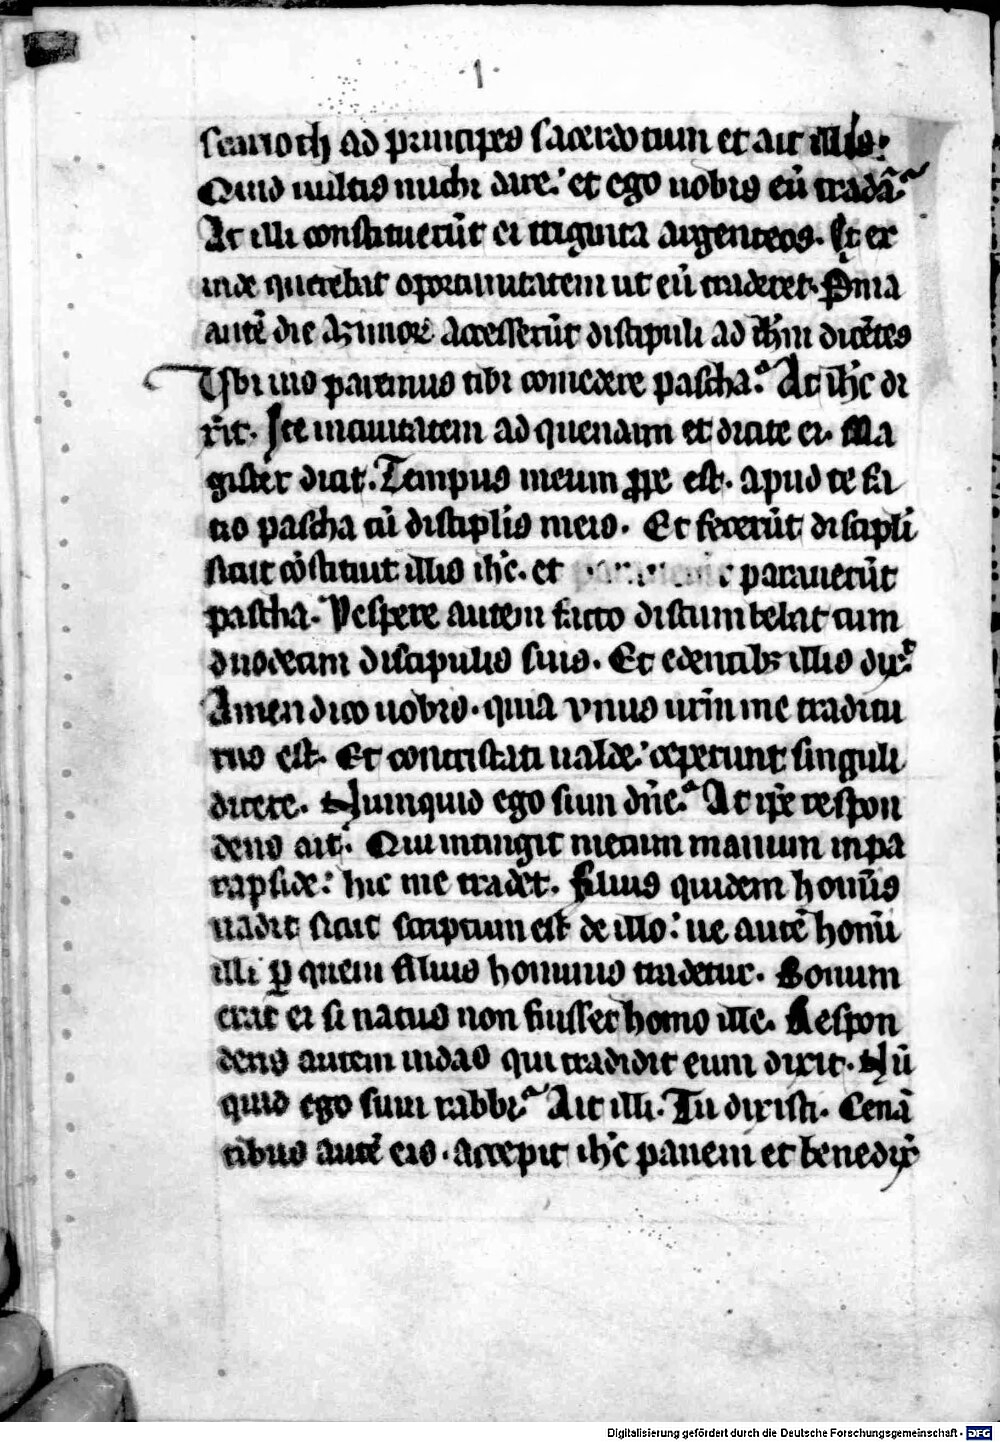 ·1·
scarioth ad principes sacerdotum et ait illis:
Quid uultis michi dare. et ego uobis eū tradā.
At illi constituerūt ei triginta argenteos. Et ex
inde querebat oportunitatem ut eū traderet. Pma
autē die azimoꝝ accesserūt discipuli ad ihm dicētes
Vbi uis paremus tibi comedere pascha. At ihc di
xit. Ite in ciuitatem ad quendam et dicite ei. Ma
gister dicit. Tempus meum ꝓpe est. apud te fa
cio pascha cū disciplis meis. Et fecerūt discipli
sicut cōstituit illis ihc. et parauerūt
pascha. Vespere autem facto discumbebat cum
duodecim discipulis suis. Et edentibꝫ illis dix.
Amen dico uobis. quia vnus urm me traditu
rus est. Et contristati ualde. ceperunt singuli
dicere. Numquid ego sum dn̄e. At ipe respon
dens ait. Qui intingit mecum manum in pa
rapside: hic me tradet. Filius quidem homis
uadit sicut scriptum est de illo: ue autē homi
illi ꝑ quem filius hominis tradetur. Bonum
erat ei si natus non fuisset homo ille. Respon
dens autem iudas qui tradidit eum dixit. Nū
quid ego sum rabbi. Ait illi. Tu dixisti. Cenā
tibus autē eis. accepit ihc panem et benedix
Digitalisierung gefördert durch die Deutsche Forschungsgemeinschaft - DFG